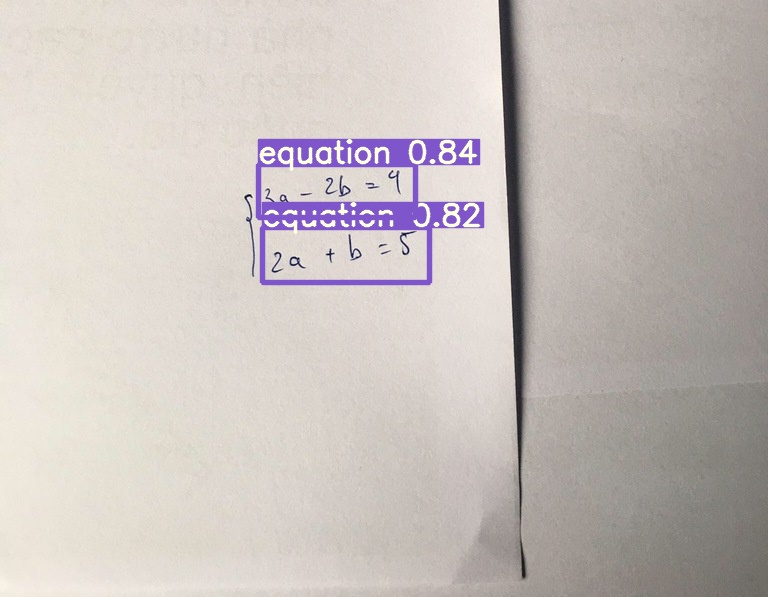 equation 0.84
3a - 2b = 4
equation 0.82
2a + b = 5